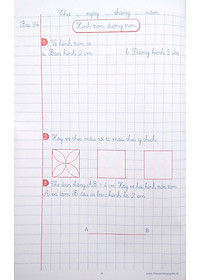 Thứ ... ngày ... tháng ... năm
Bài 94
Hình tròn, đường tròn
1 Vẽ hình tròn có
a. Bán kính 2 cm
b. Đường kính 5 cm
2 Hãy vẽ theo mẫu rồi tô màu theo ý thích
3 Cho đoạn thẳng AB = 4 cm. Hãy vẽ hai hình tròn tâm
A và tâm B đều có bán kính là 2 cm
A
B